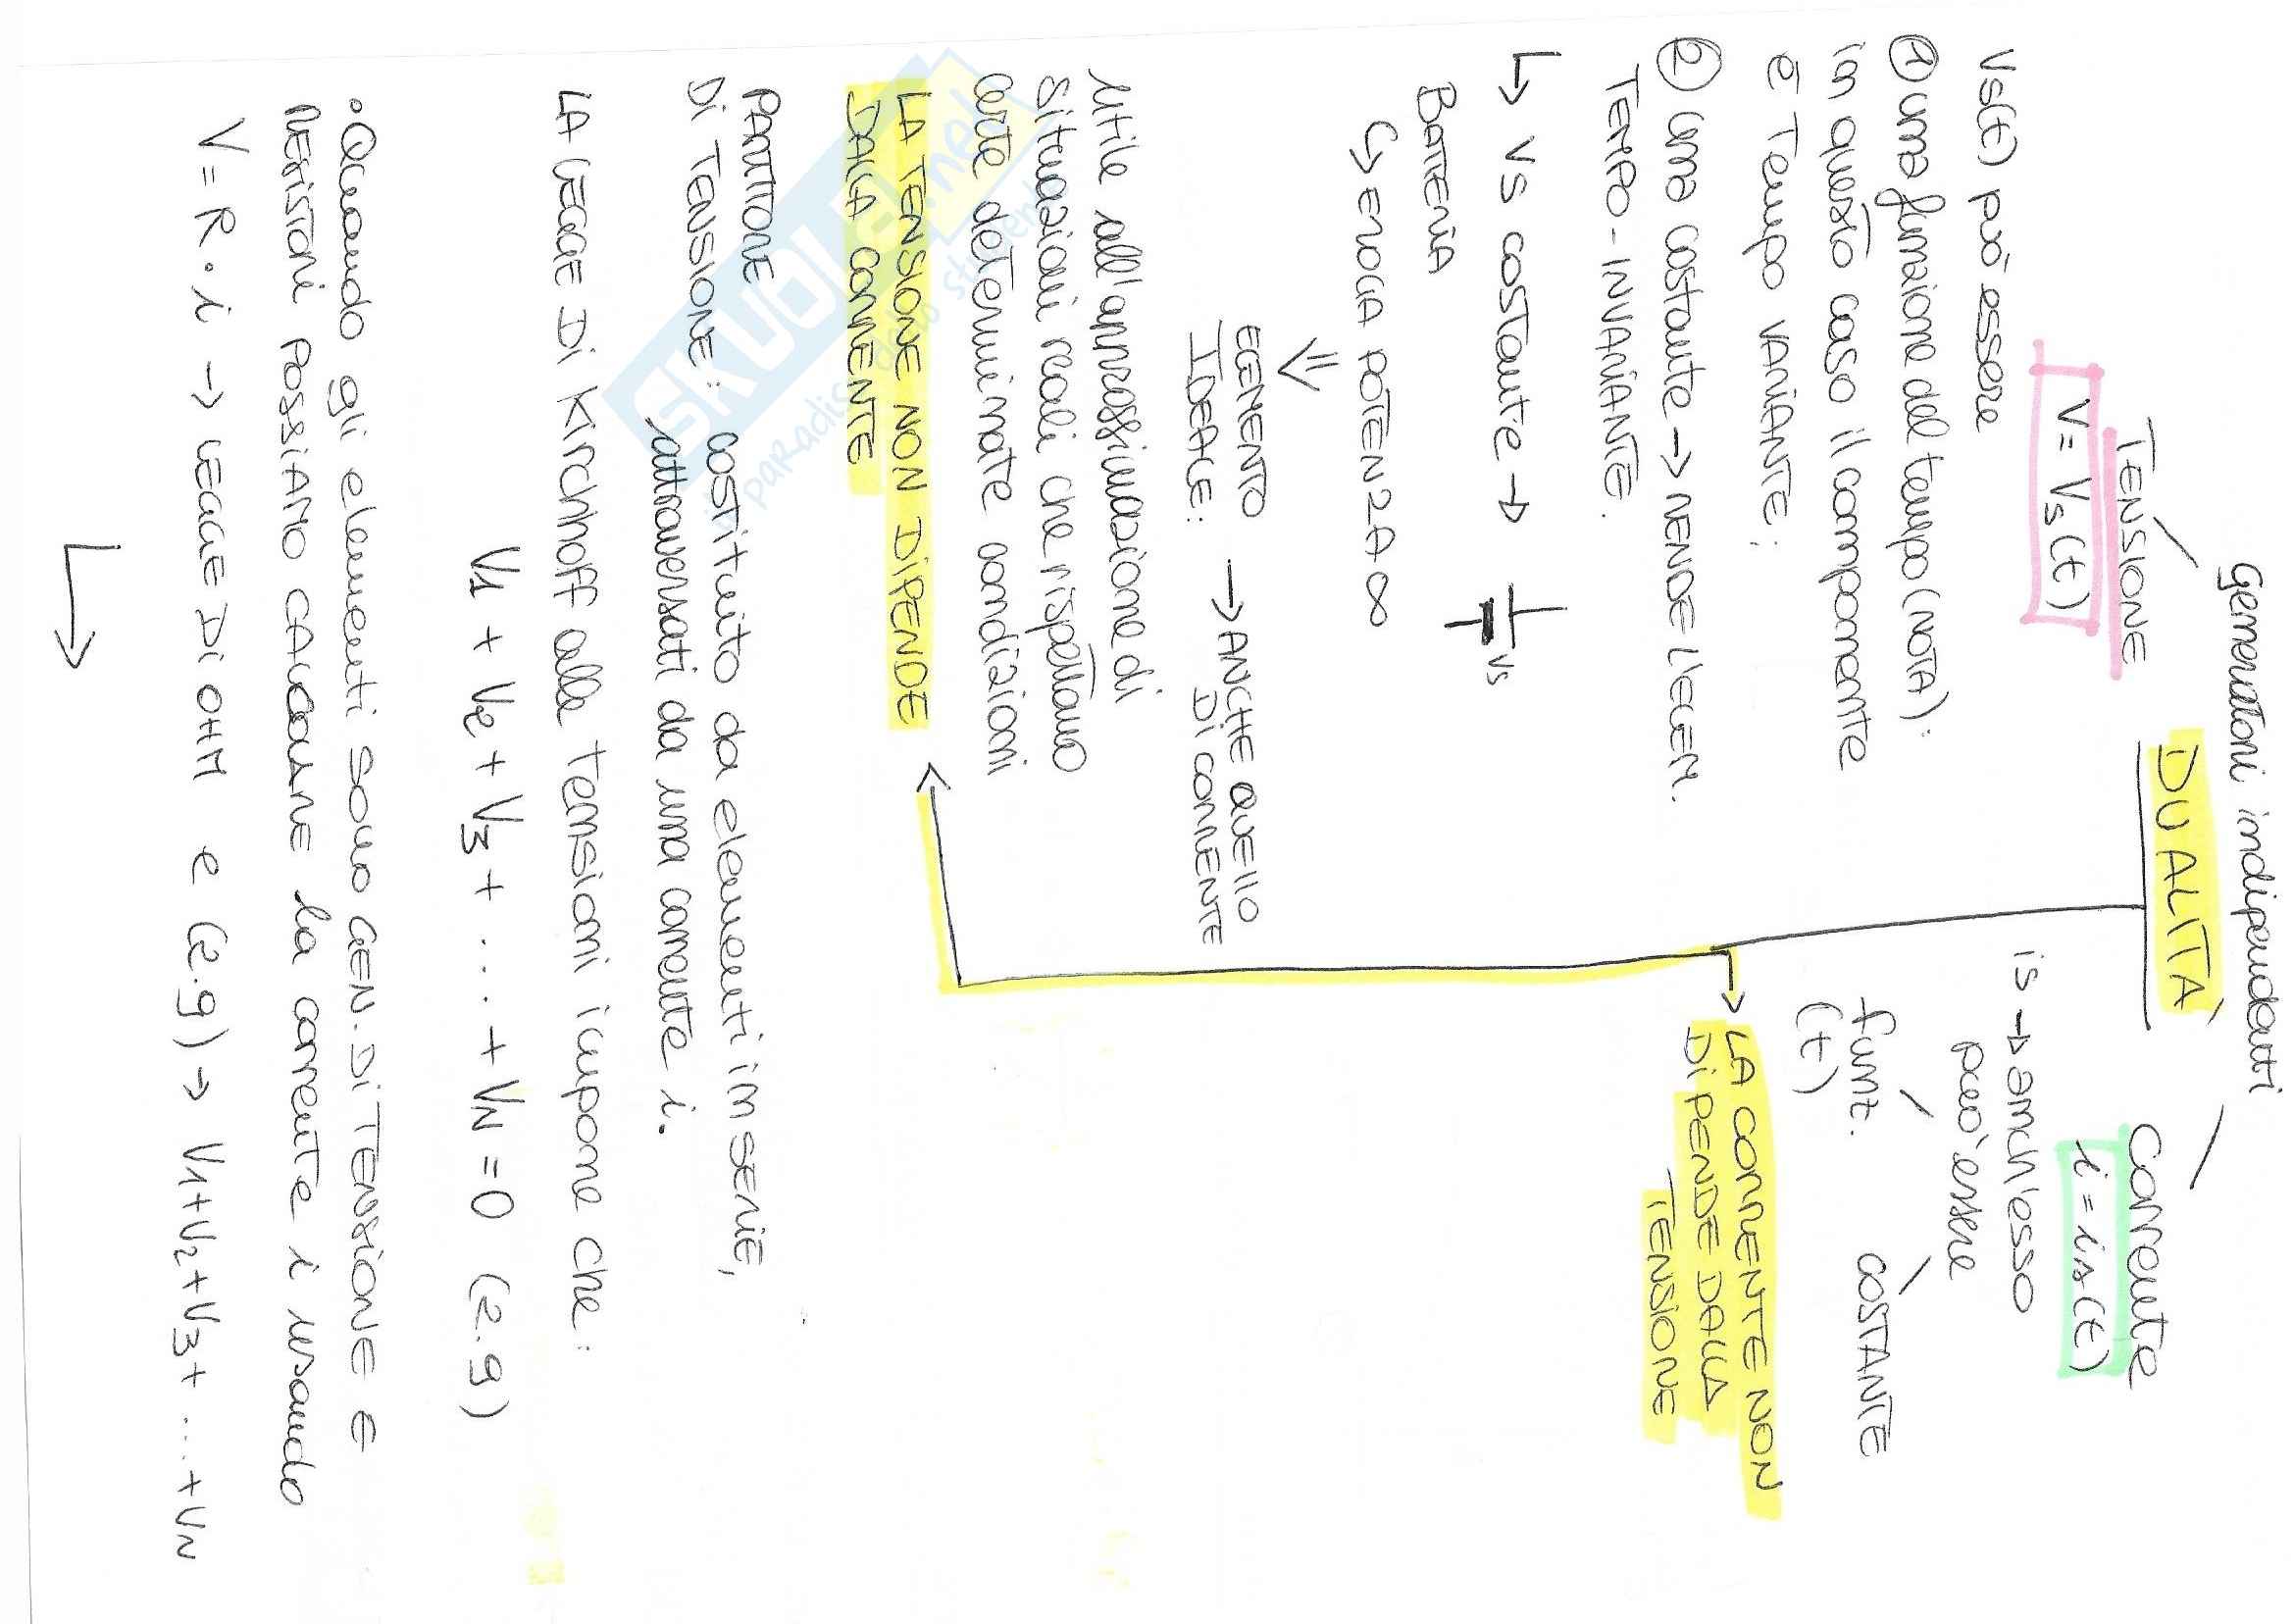 Generatori indipendenti
TENSIONE
DUALITÀ
Corrente
V = Vs(t)
i = is(t)
Vs(t) può essere
① una funzione del tempo (NOTA):
in questo caso il componente
è Tempo VARIANTE;
② una costante → RENDE L'ELEM.
TEMPO-INVARIANTE.
↳ VS COSTante →
Vs
BATTERIA
↳ EROGA POTENZA ∞
⇓
is → anch'esso
può essere
funz.
(t)
COSTANTE
LA CORRENTE NON
DIPENDE DALLA
TENSIONE
ELEMENTO
IDEALE:
→ ANCHE QUELLO
DI CORRENTE
Utile all'approssimazione di
Situazioni reali che rispettano
certe determinate condizioni
LA TENSIONE NON DIPENDE
DALLA CORRENTE
PARTITORE
DI TENSIONE: costituito da elementi in SERIE,
attraversati da una corrente i.
LA LEGGE DI Kirchhoff alle Tensioni impone che:
V1 + V2 + V3 + ... + VN = 0 (2.9)
• Quando gli elementi sono GEN. DI TENSIONE E
RESISTORI POSSIAMO CALCOLARE la corrente i usando
V = R · i → LEGGE DI OHM e (2.9) → V1+V2+V3+ ... +VN
↳
SKUOLA.net
il paradiso dello studente